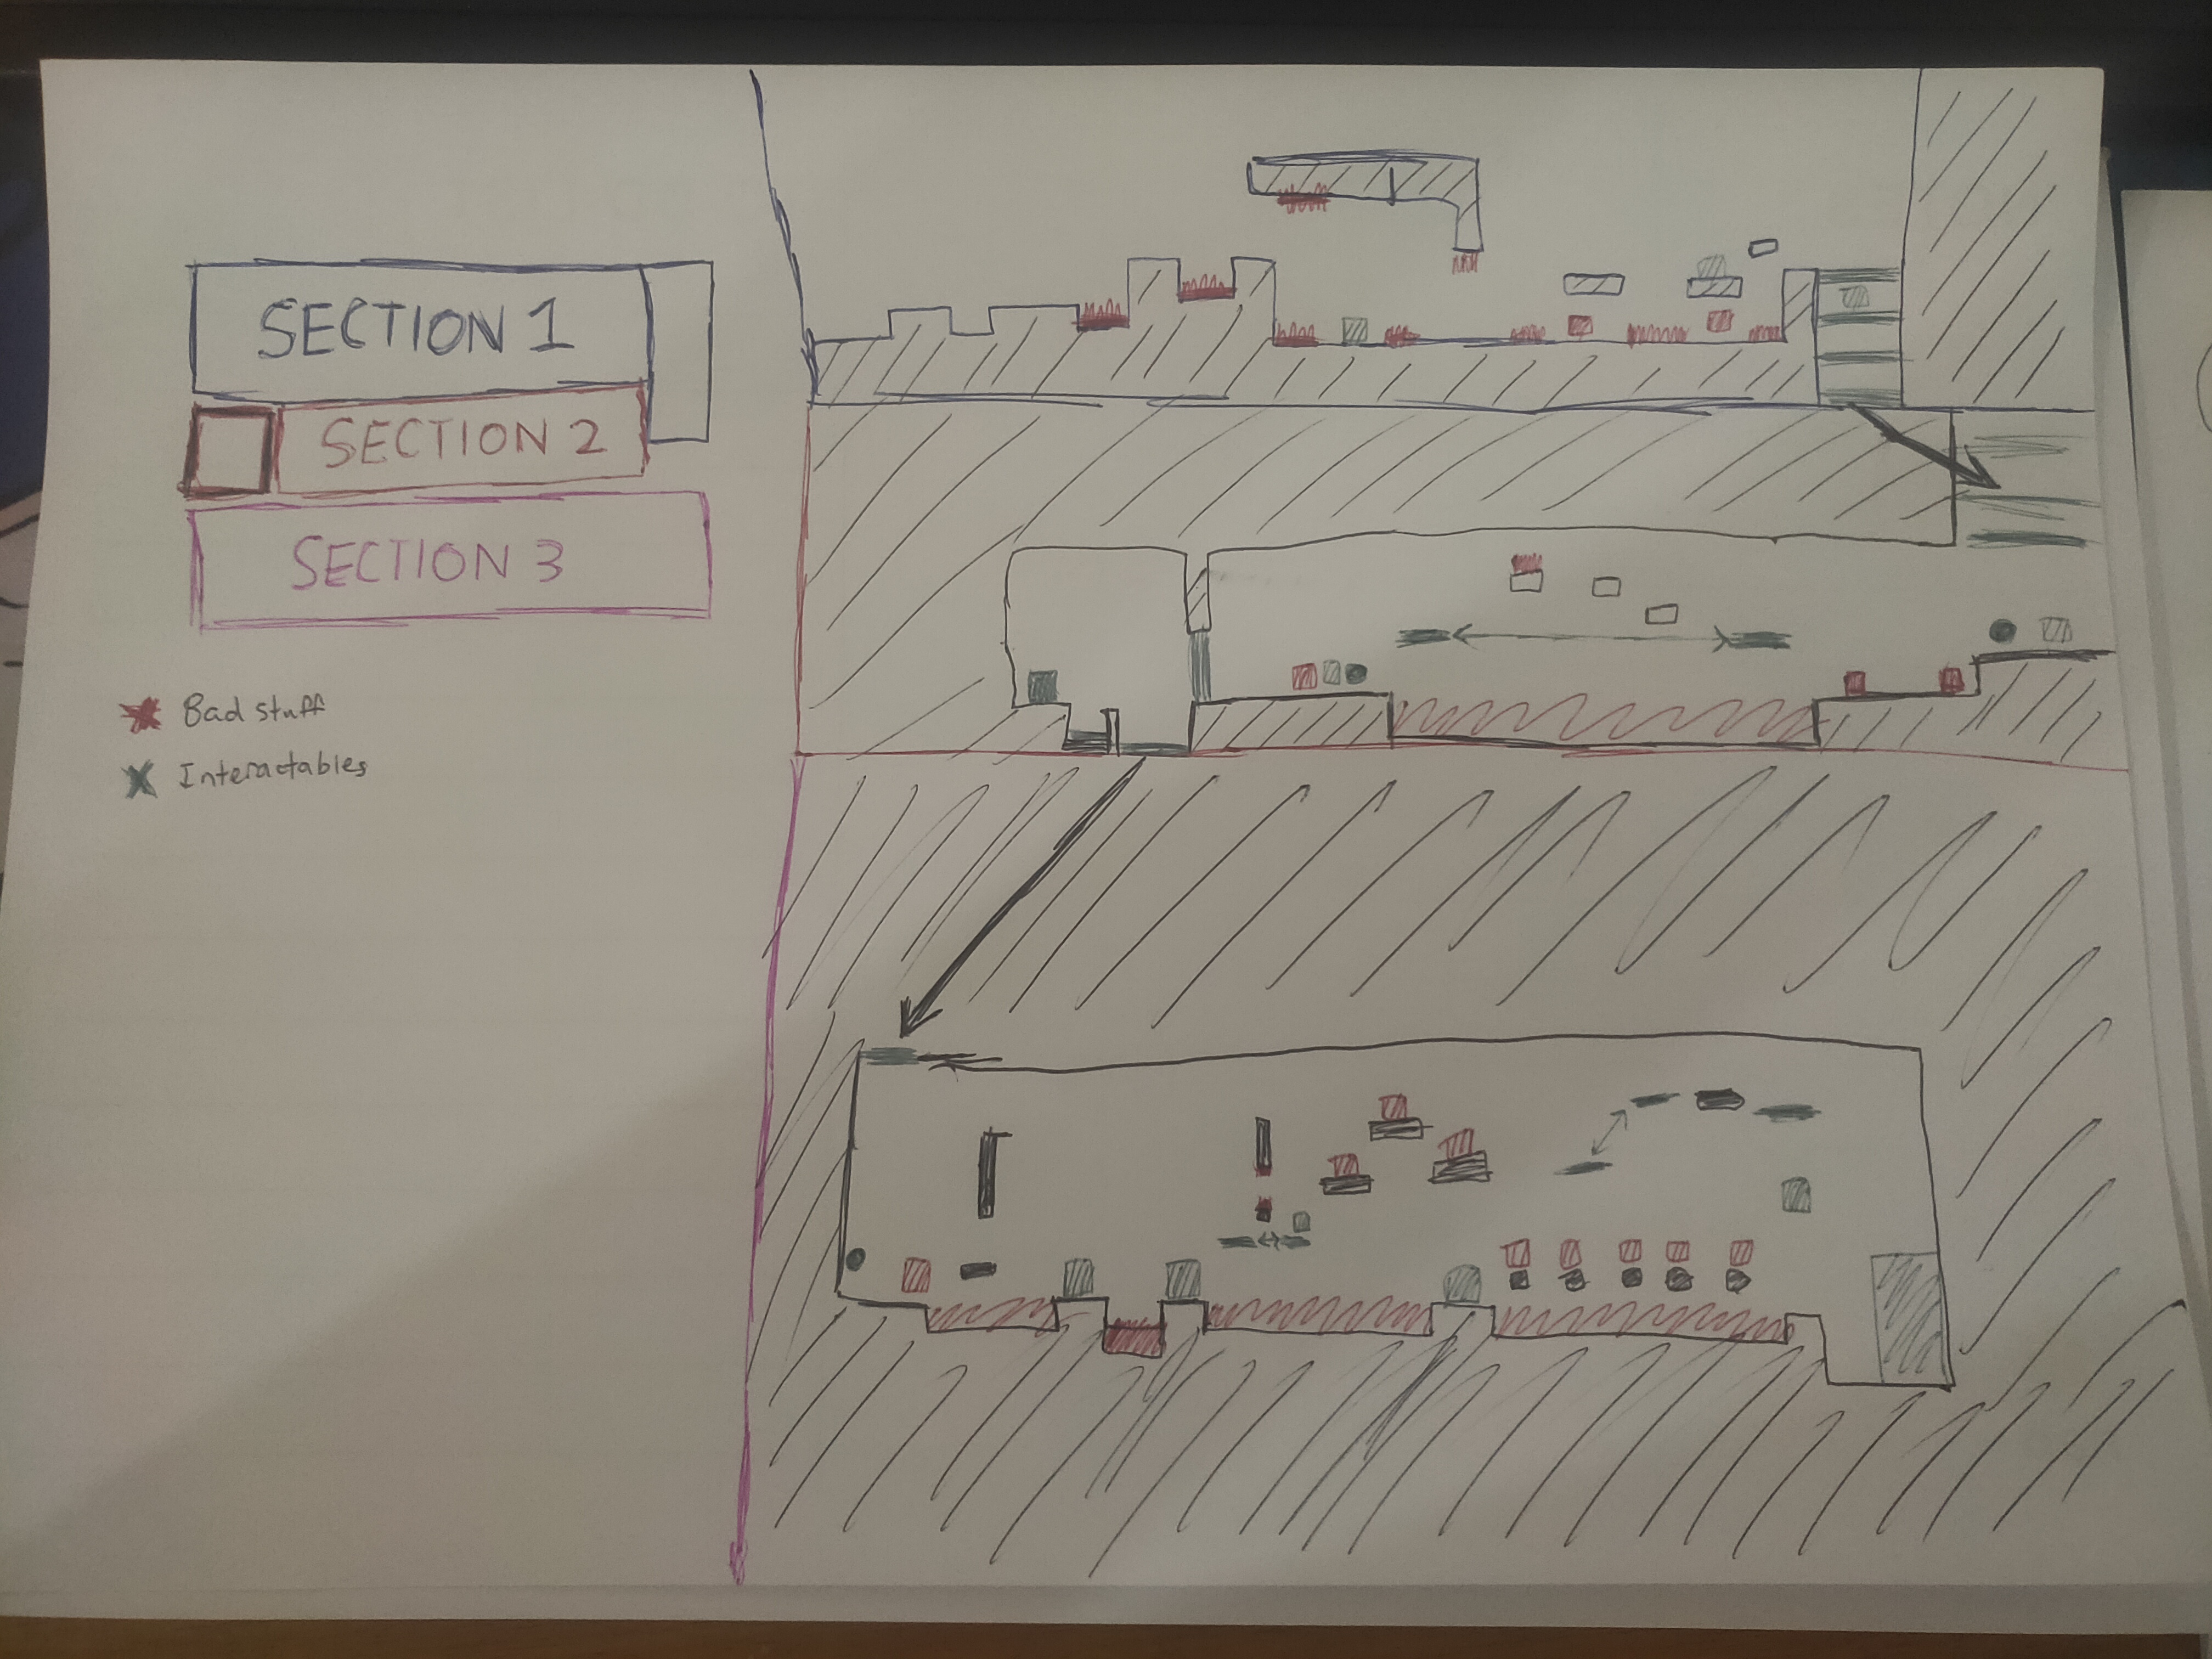 SECTION 1
SECTION 2
SECTION 3
Bad stuff
Interactables